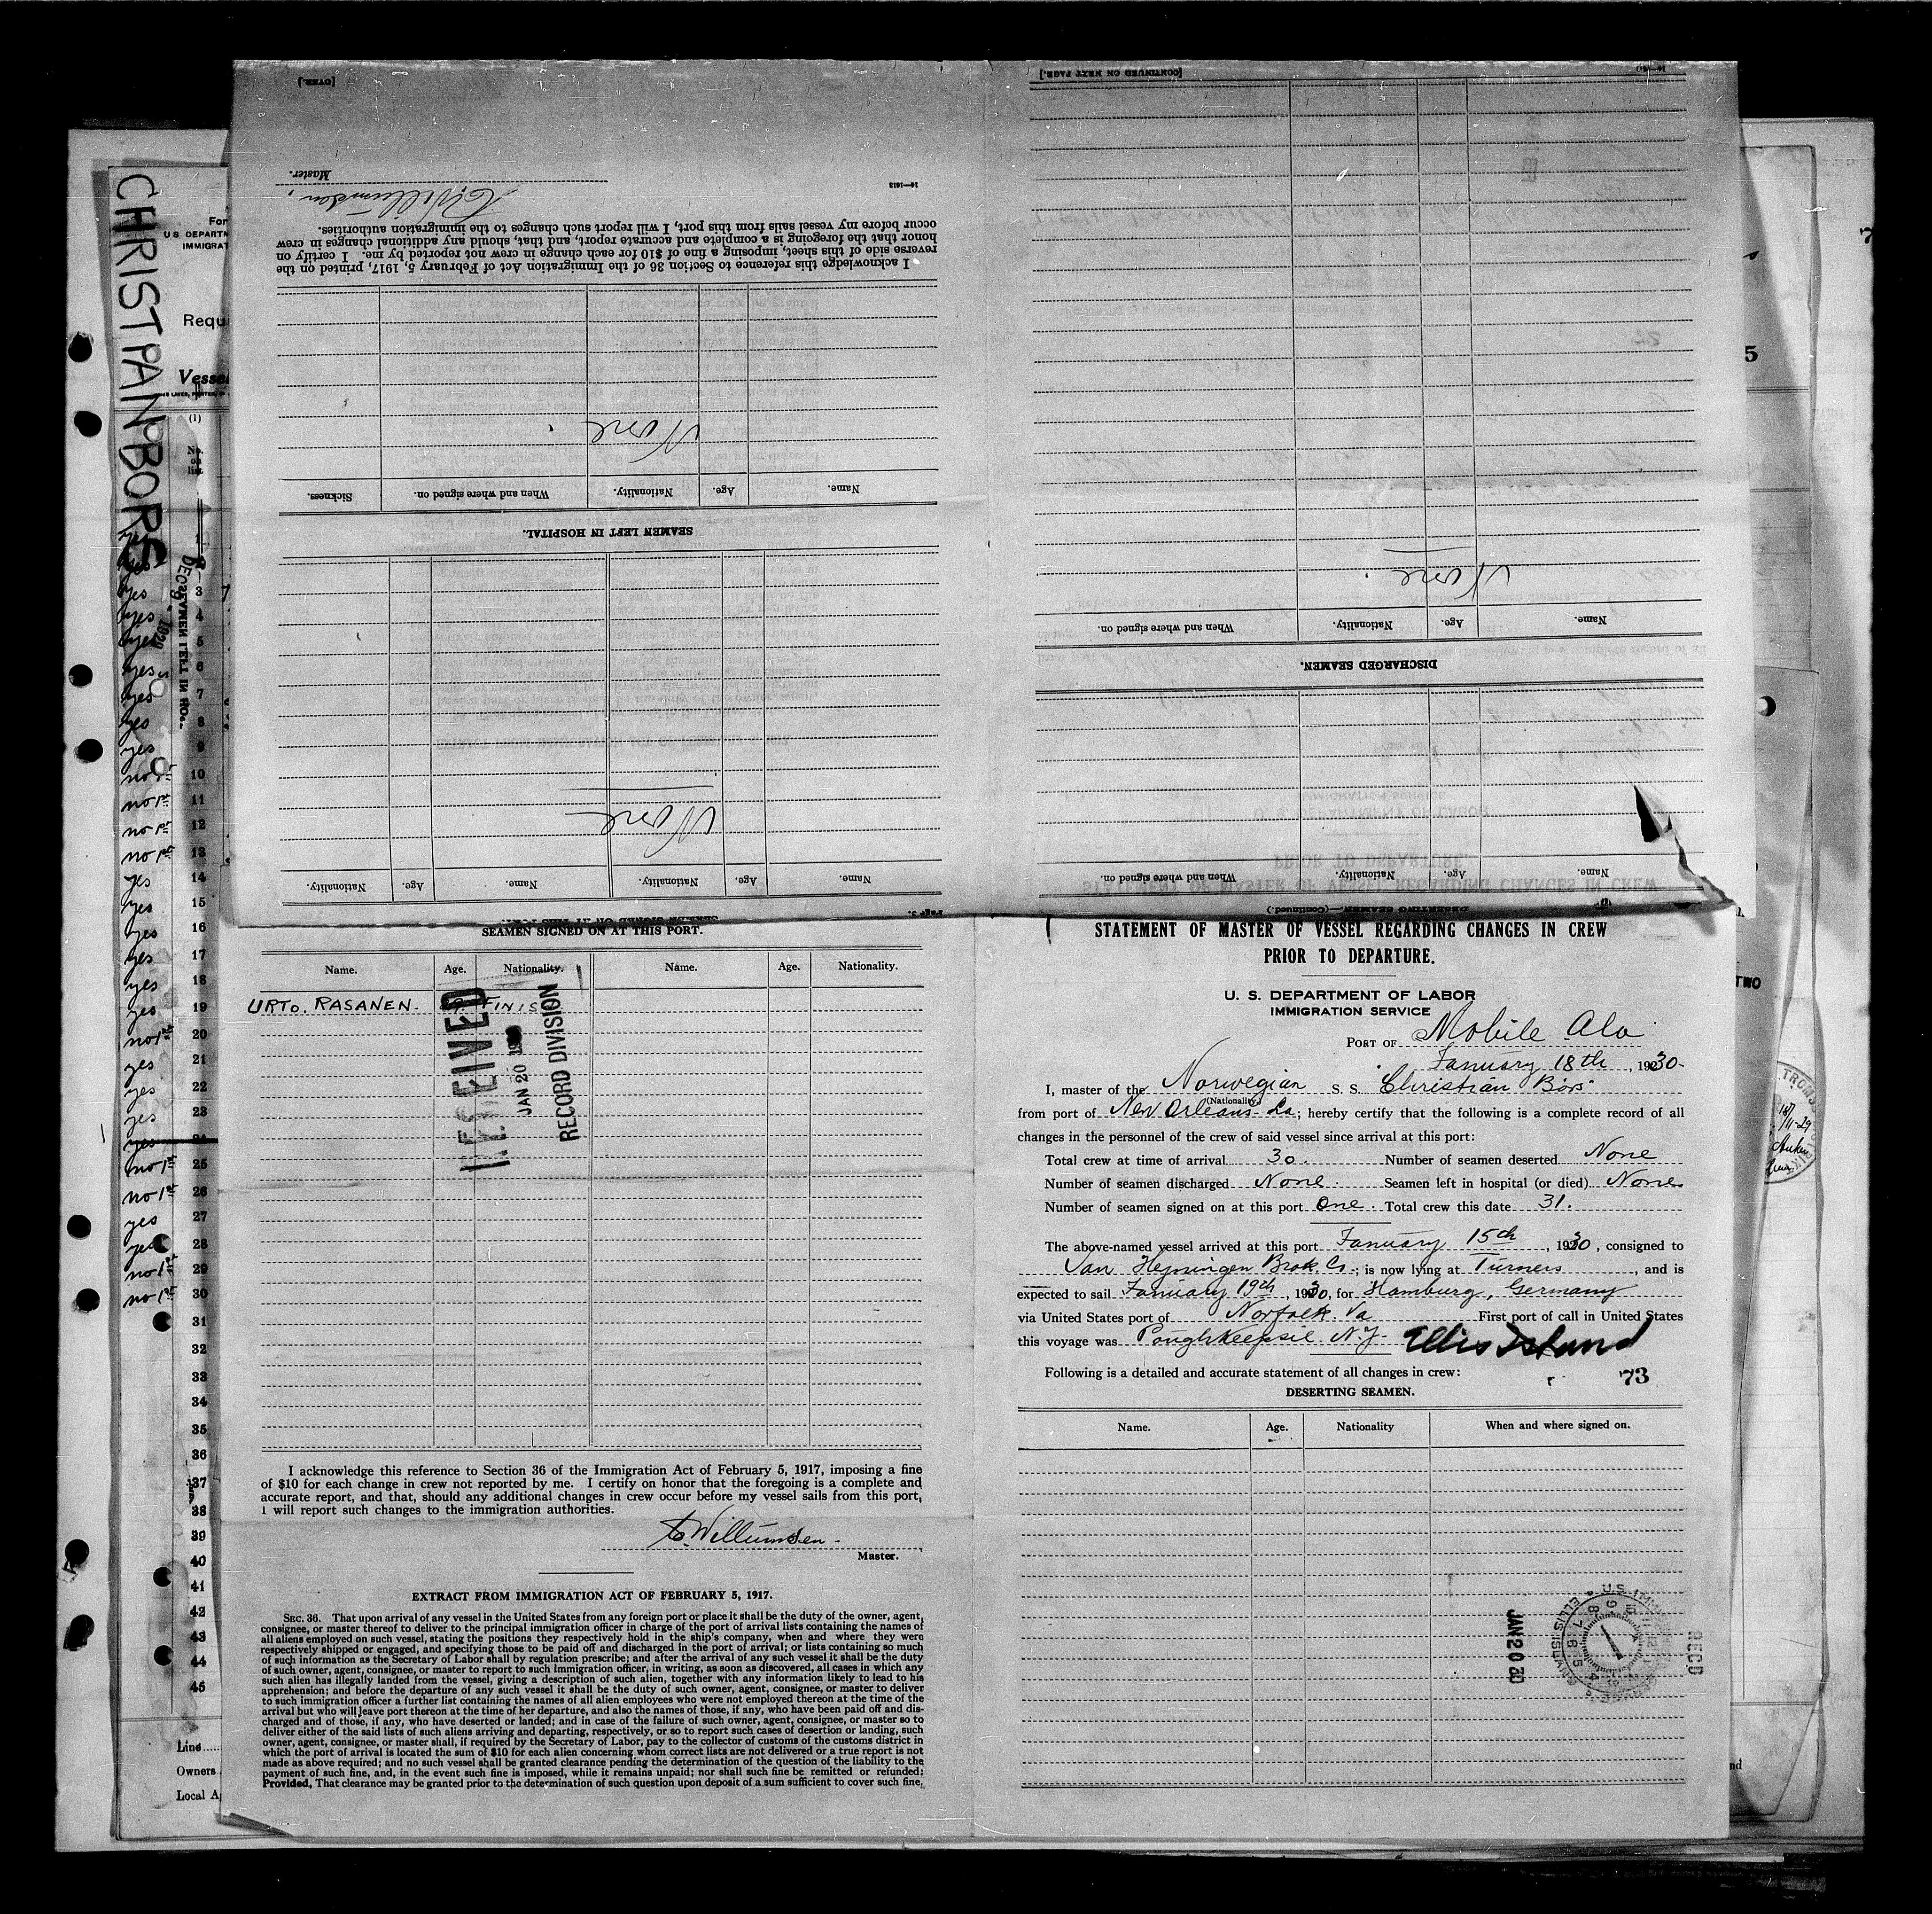 CHRISTPAIN BORS
U S DEPARTM
IMMIGRAT
Requ
Vesse
(1)
No. on list.
DEC 1929
[OVER.]
Master.
16—1613
I acknowledge this reference to Section 36 of the Immigration Act of February 5, 1917, printed on the
reverse side of this sheet, imposing a fine of $10 for each change in crew not reported by me. I certify on
honor that the foregoing is a complete and accurate report, and that, should any additional changes in crew
occur before my vessel sails from this port, I will report such changes to the immigration authorities.
None
Name. Age. Nationality. When and where signed on. Sickness.
SEAMEN LEFT IN HOSPITAL.
None
Name. Age. Nationality. Name. Age. Nationality.
[CONTINUED ON NEXT PAGE.]
None
Name. Age. Nationality. When and where signed on.
DISCHARGED SEAMEN.
Name. Age. Nationality. When and where signed on.
DESERTING SEAMEN—(Continued.)
SEAMEN SIGNED ON AT THIS PORT.
Name. Age. Nationality. Name. Age. Nationality.
URTO. RASANEN. FINIS
RECEIVED
JAN 20
RECORD DIVISION
I acknowledge this reference to Section 36 of the Immigration Act of February 5, 1917, imposing a fine
of $10 for each change in crew not reported by me. I certify on honor that the foregoing is a complete and
accurate report, and that, should any additional changes in crew occur before my vessel sails from this port,
I will report such changes to the immigration authorities.
Willumsen
Master.
EXTRACT FROM IMMIGRATION ACT OF FEBRUARY 5, 1917.
SEC. 36. That upon arrival of any vessel in the United States from any foreign port or place it shall be the duty of the owner, agent,
consignee, or master thereof to deliver to the principal immigration officer in charge of the port of arrival lists containing the names of
all aliens employed on such vessel, stating the positions they respectively hold in the ship's company, when and where they were
respectively shipped or engaged, and specifying those to be paid off and discharged in the port of arrival; or lists containing so much
of such information as the Secretary of Labor shall by regulation prescribe; and after the arrival of any such vessel it shall be the duty
of such owner, agent, consignee, or master to report to such immigration officer, in writing, as soon as discovered, all cases in which any
such alien has illegally landed from the vessel, giving a description of such alien, together with any information likely to lead to his
apprehension; and before the departure of any such vessel it shall be the duty of such owner, agent, consignee, or master to deliver
to such immigration officer a further list containing the names of all alien employees who were not employed thereon at the time of the
arrival but who will leave port thereon at the time of her departure, and also the names of those, if any, who have been paid off and dis-
charged and of those, if any, who have deserted or landed; and in case of the failure of such owner, agent, consignee, or master so to
deliver either of the said lists of such aliens arriving and departing, respectively, or so to report such cases of desertion or landing, such
owner, agent, consignee, or master shall, if required by the Secretary of Labor, pay to the collector of customs of the customs district in
which the port of arrival is located the sum of $10 for each alien concerning whom correct lists are not delivered or a true report is not
made as above required; and no such vessel shall be granted clearance pending the determination of the question of the liability to the
payment of such fine, and, in the event such fine is imposed, while it remains unpaid; nor shall such fine be remitted or refunded:
Provided, That clearance may be granted prior to the determination of such question upon deposit of a sum sufficient to cover such fine.
STATEMENT OF MASTER OF VESSEL REGARDING CHANGES IN CREW
PRIOR TO DEPARTURE.
U. S. DEPARTMENT OF LABOR
IMMIGRATION SERVICE
PORT OF Mobile Ala
January 18th, 1930.
I, master of the Norwegian S. S. Christian Bors
(Nationality)
from port of New Orleans La; hereby certify that the following is a complete record of all
changes in the personnel of the crew of said vessel since arrival at this port:
Total crew at time of arrival 30. Number of seamen deserted None
Number of seamen discharged None. Seamen left in hospital (or died) None
Number of seamen signed on at this port One. Total crew this date 31.
The above-named vessel arrived at this port January 15th, 1930, consigned to
Van Heyningen Brok. Co.; is now lying at Turners, and is
expected to sail January 19th, 1930, for Hamburg, Germany
via United States port of Norfolk Va First port of call in United States
this voyage was Poughkeepsie N.Y. Ellis Island
Following is a detailed and accurate statement of all changes in crew:
73
DESERTING SEAMEN.
Name. Age. Nationality When and where signed on.
JAN 20 30
RECD
Line
Owners
Local A